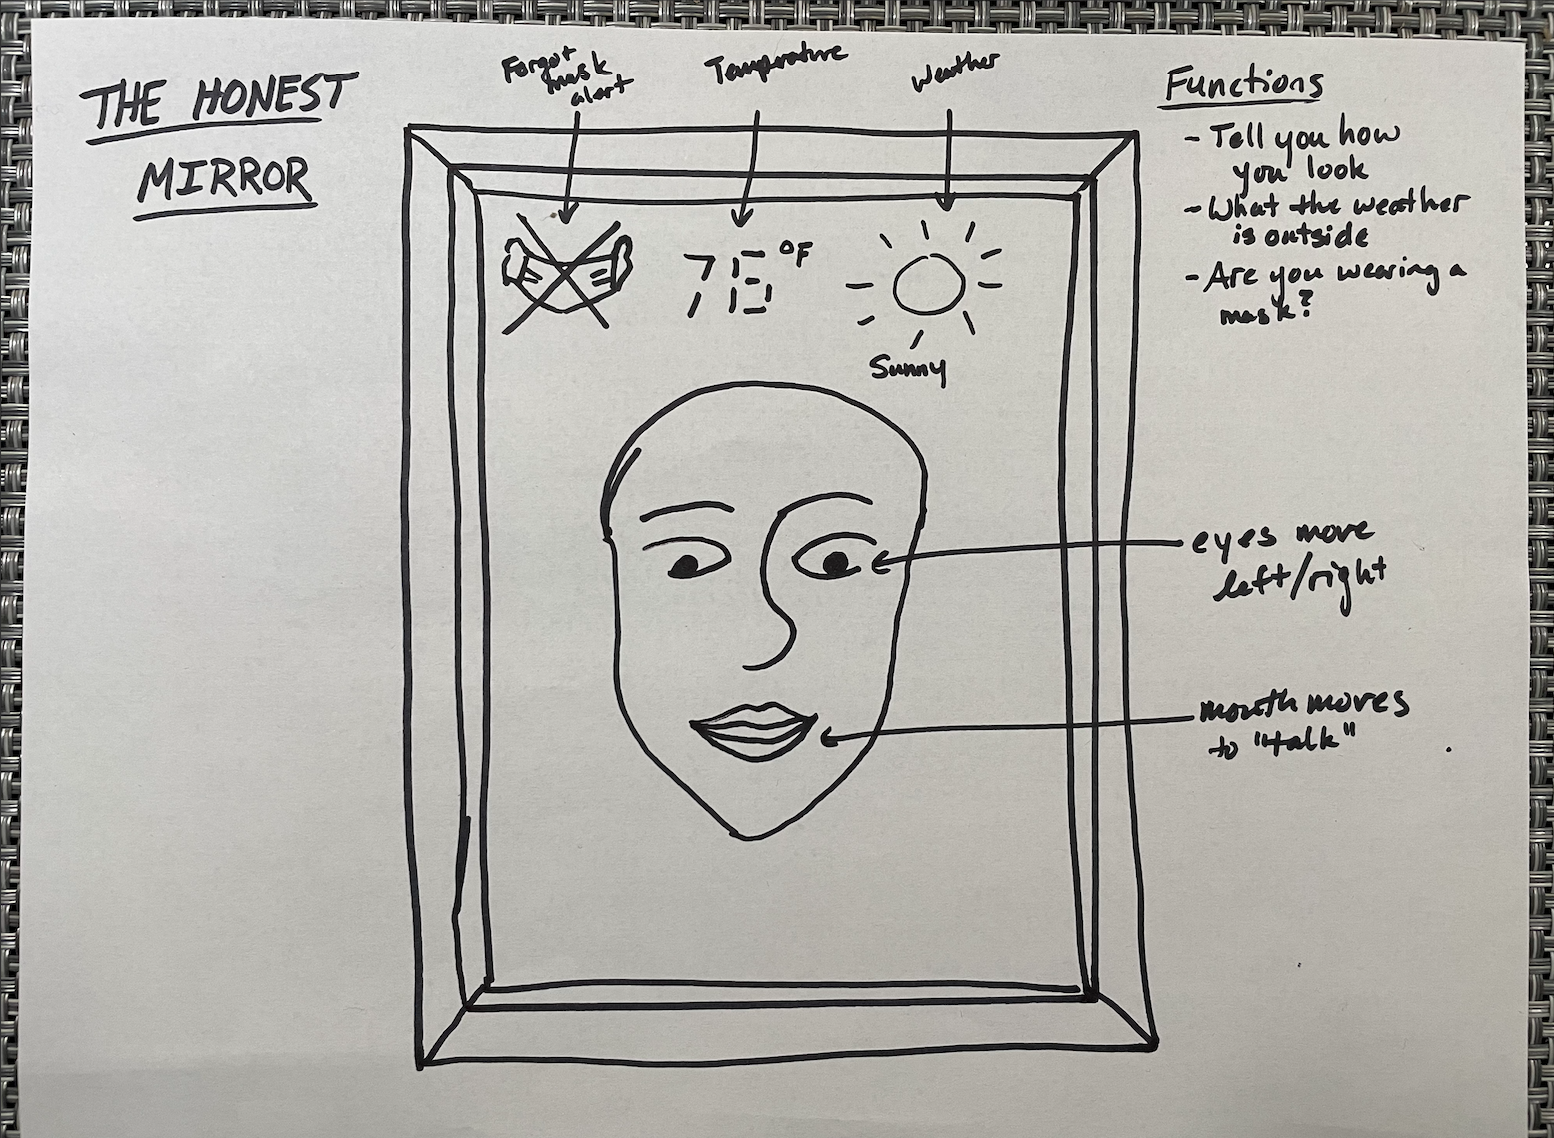 THE HONEST
MIRROR
Forgot
mask
alert
Temperature
Weather
°F
Sunny
Functions
- Tell you how
you look
- What the weather
is outside
- Are you wearing a
mask?
eyes move
left/right
mouth moves
to "talk"